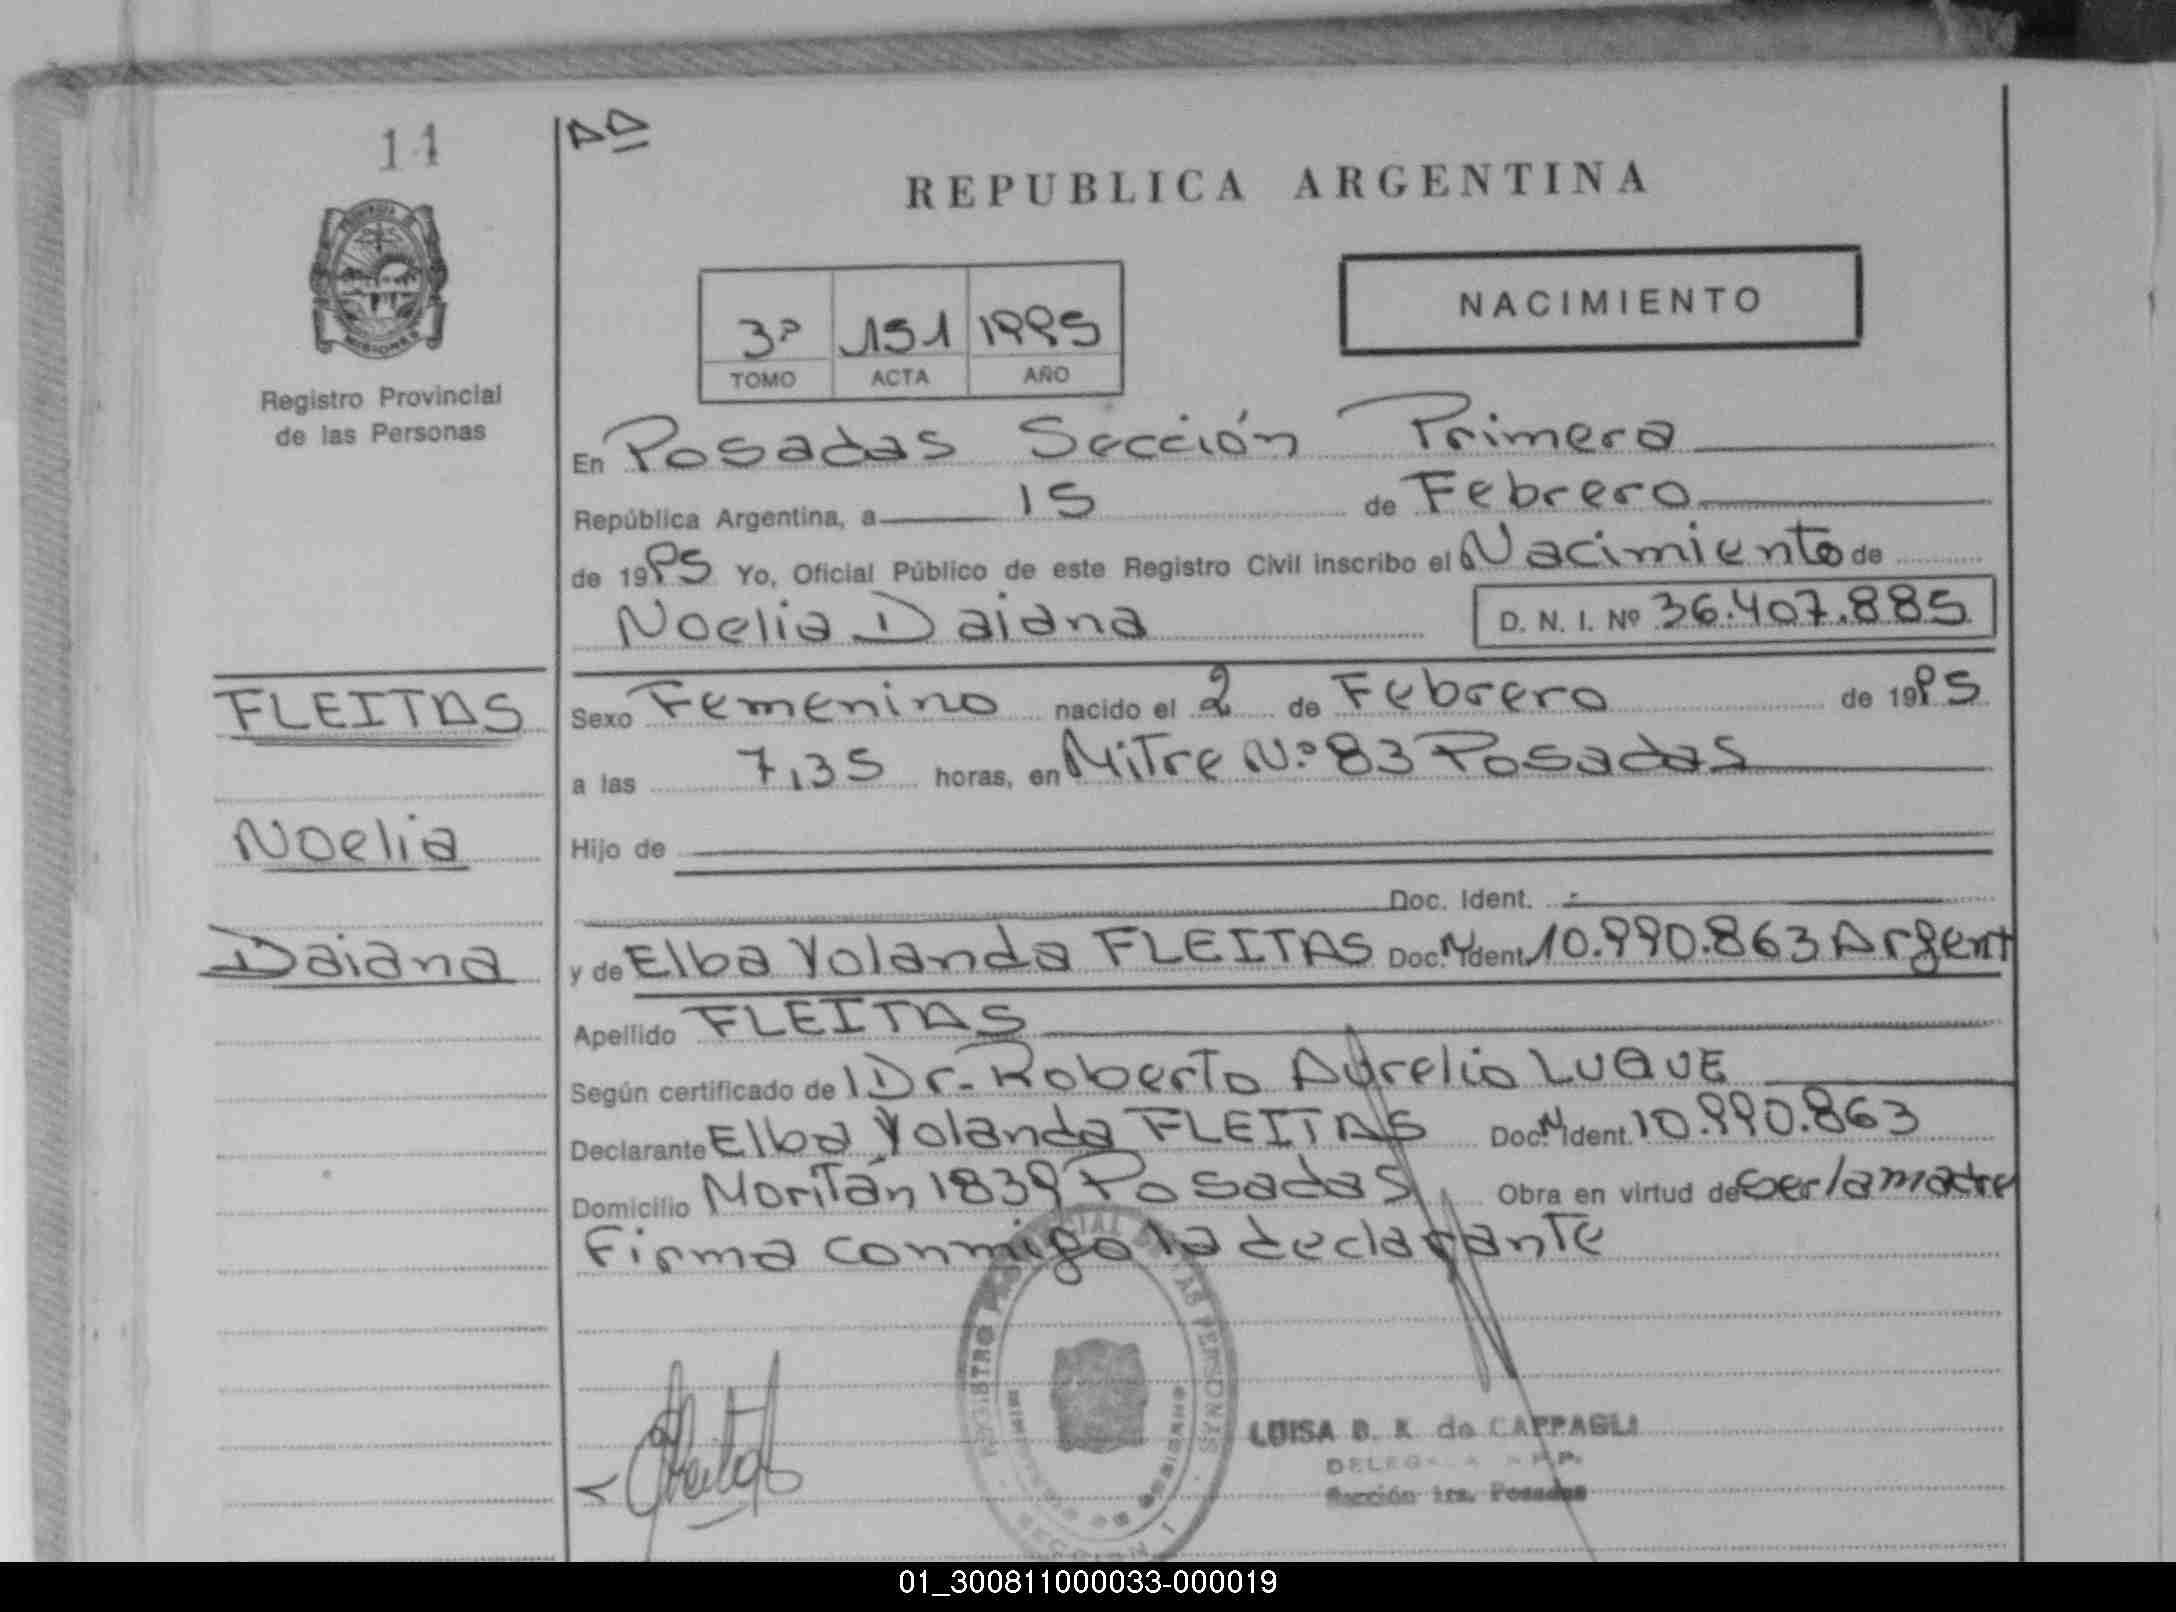 14
REPUBLICA ARGENTINA
MISIONES
Registro Provincial
de las Personas
3º 151 1995
TOMO ACTA AÑO
NACIMIENTO
En Posadas Sección Primera
República Argentina, a 15 de Febrero
de 1995 Yo, Oficial Público de este Registro Civil inscribo el Nacimiento de
Noelia Daiana D. N. I. Nº 36.407.885
FLEITAS
Noelia
Daiana
Sexo Femenino nacido el 2 de Febrero de 1995
a las 7,35 horas, en Mitre N.º 83 Posadas
Hijo de
Doc. Ident.
y de Elba Yolanda FLEITAS Doc. Ident. 10.990.863 Argent
Apellido FLEITAS
Según certificado de Dr. Roberto Aurelio LUQUE
Declarante Elba Yolanda FLEITAS Doc. Ident. 10.990.863
Domicilio Moritán 1839 Posadas Obra en virtud de ser la madre
Firma conmigo la declarante
LUISA B. K. de CAPPAGLI
Sección 1ra. Posadas
01_300811000033-000019